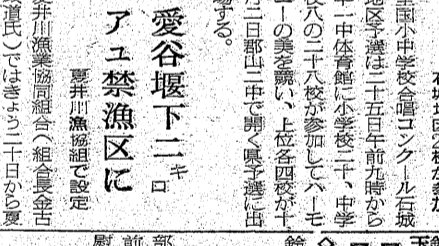 全国小中学校合唱コンクール石城
地区予選は二十五日午前九時から
一中体育館に小学校二十、中学
校八の二十八校が参加してハーモ
ニーの美を競い、上位各四校が十
月二日郡山二中で開く県予選に出
場する。
愛谷堰下二キロ
アユ禁漁区に
夏井川漁協組で設定
夏井川漁業協同組合(組合長金古
道氏)ではきょう二十日から夏